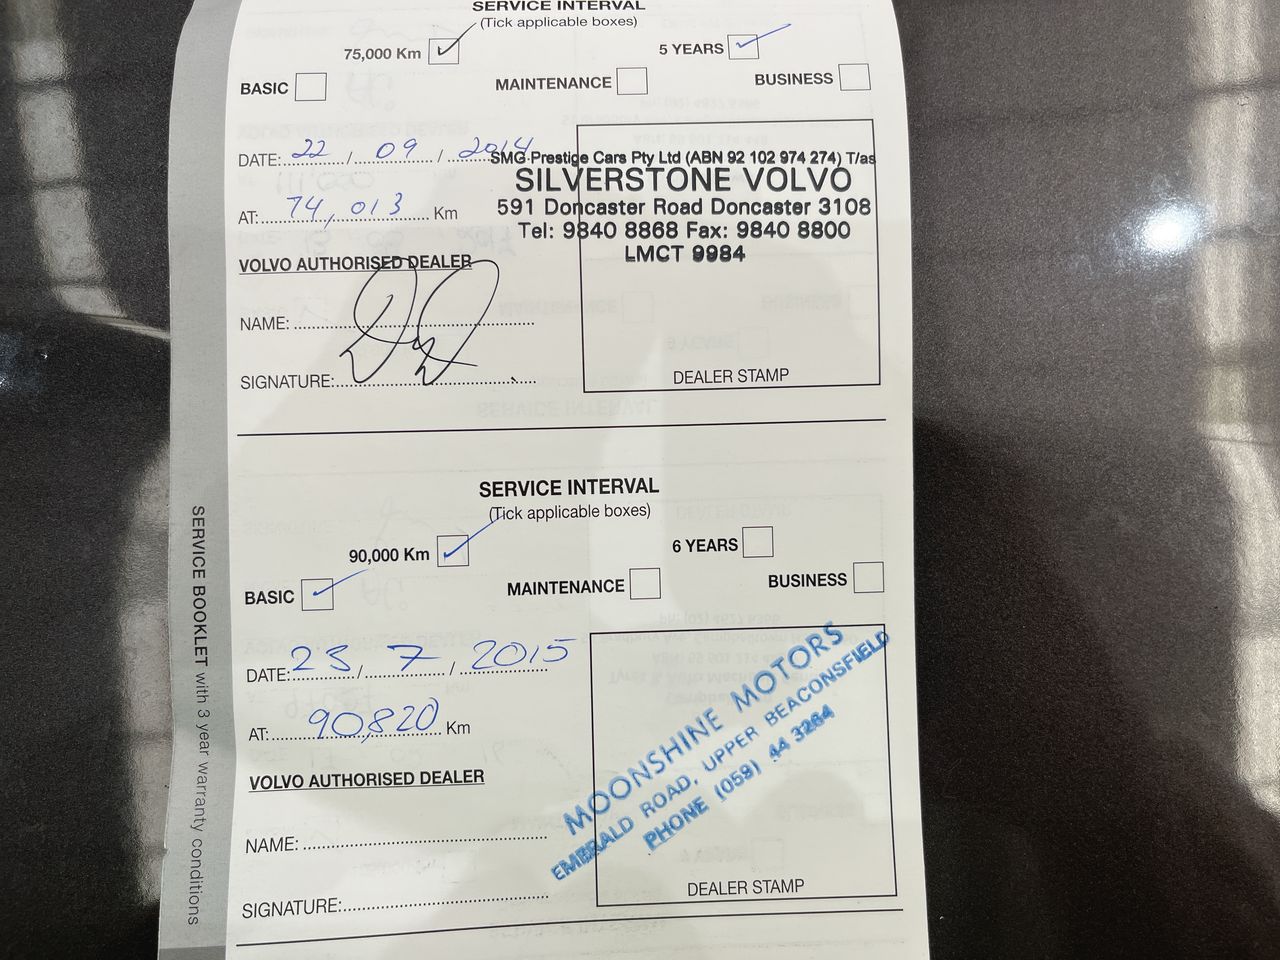 SERVICE INTERVAL
(Tick applicable boxes)
75,000 Km 5 YEARS
BASIC MAINTENANCE BUSINESS
DATE: 22 / 09 / 2014
AT: 74,013 Km
SMG Prestige Cars Pty Ltd (ABN 92 102 974 274) T/as
SILVERSTONE VOLVO
591 Doncaster Road Doncaster 3108
Tel: 9840 8868 Fax: 9840 8800
LMCT 9984
VOLVO AUTHORISED DEALER
NAME:
SIGNATURE:
DEALER STAMP
SERVICE INTERVAL
(Tick applicable boxes)
90,000 Km 6 YEARS
BASIC MAINTENANCE BUSINESS
DATE: 23 / 7 / 2015
AT: 90,820 Km
VOLVO AUTHORISED DEALER
NAME:
SIGNATURE:
MOONSHINE MOTORS
EMERALD ROAD, UPPER BEACONSFIELD
PHONE (059) 44 3264
DEALER STAMP
SERVICE BOOKLET with 3 year warranty conditions